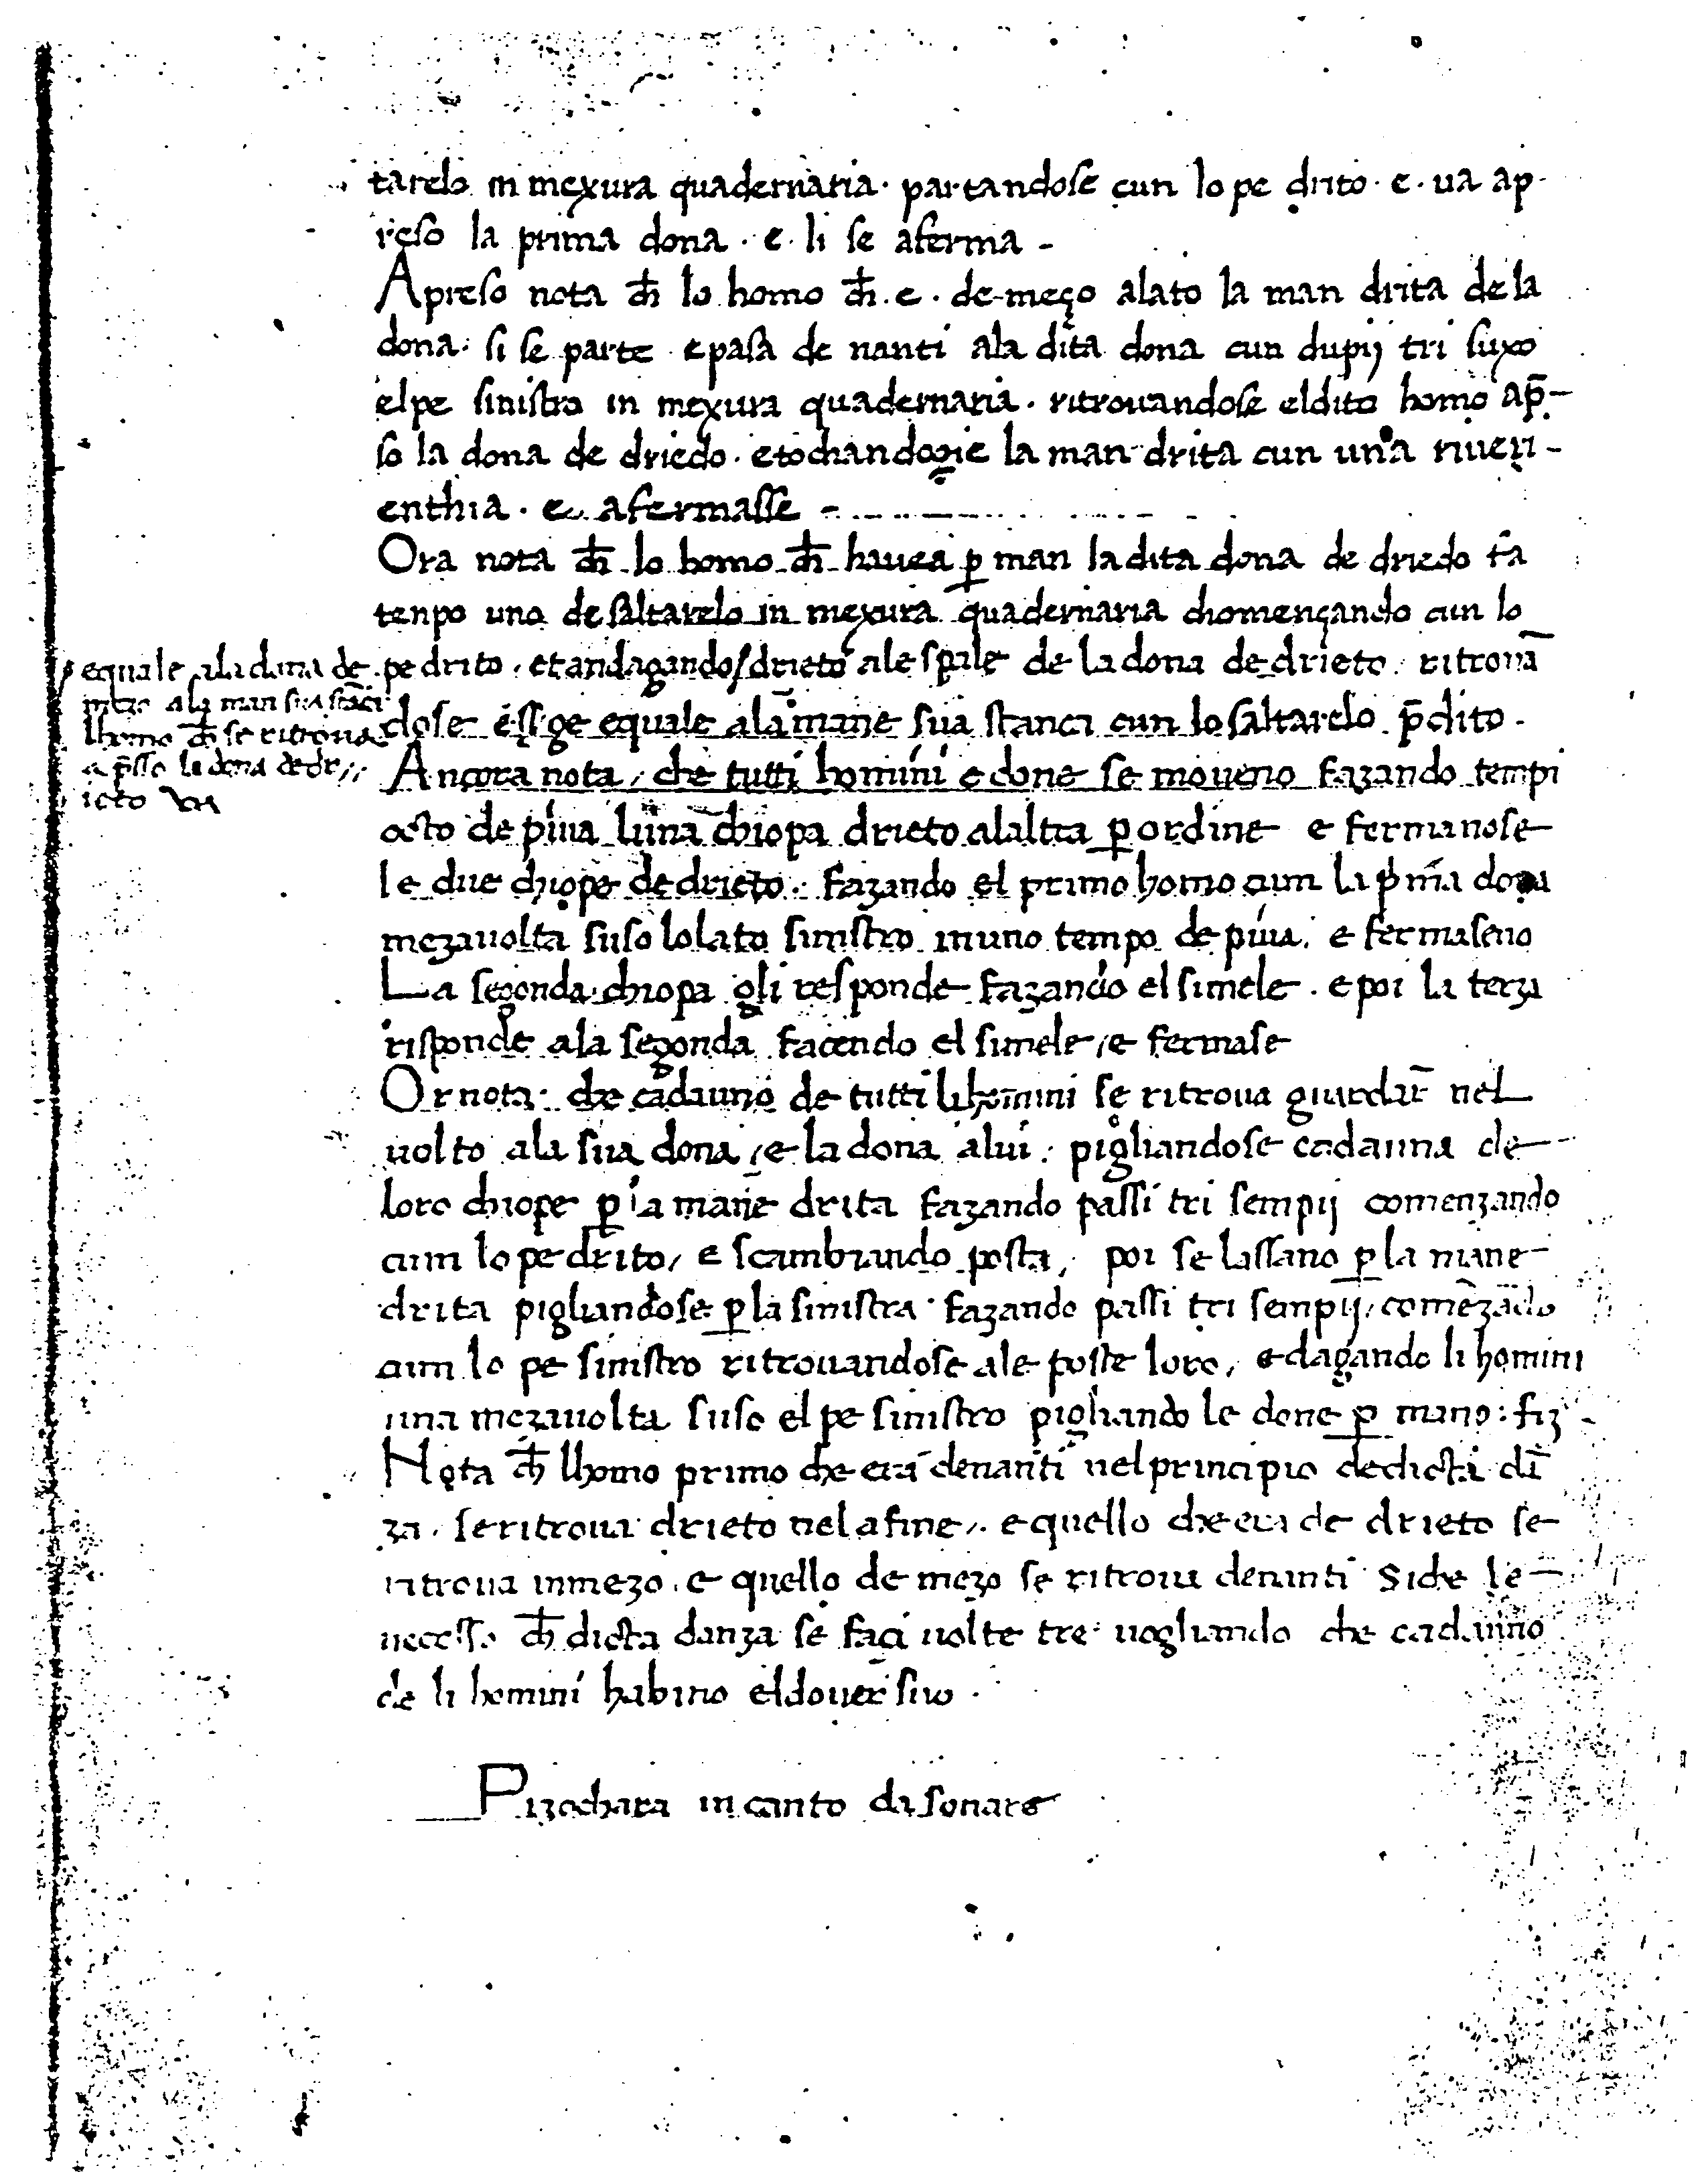 tarelo in mexura quadernaria · partandose cun lo pe drito · e · ua ap-
reso la prima dona · e · li se aferma -
Apreso nota ch̄ lo homo ch̄ · e · de meço alato la man drita de la
dona · si se parte e pasa de nanti ala dita dona cun dupij tri suxo
el pe sinistro in mexura quadernaria · ritrouandose el dito homo ap̄-
so la dona de driedo · e tochandogie la man drita cun una riueri-
enthia · e afermasse -
Ora nota ch̄ lo homo ch̄ hauea p̱ man la dita dona de driedo fa
tenpo uno de saltarelo in mexura quadernaria chomençando cun lo
pe drito · et andagando / drieto ale spale de la dona de drieto · ritrouā
dose essge equale ala mane sua stanca cun lo saltarelo p̄dito ·
equale ala dana de
mezo ala man sua stāci
lhomo ch̄ se ritroua
a p̄sso la dona de dr //
ieto
Ancora nota / che tutti homini e done se moueno fazando tempi
octo de piua luna chiopa drieto alaltra p̱ ordine e fermanose
le due chiope de drieto · fazando el primo homo cum la p̱mā dona
mezauolta suso lo lato sinistro in uno tempo de piua · e fermaseno
La segonda chiopa gli responde fazando el simele · e poi la terza
risponde ala segonda facendo el simele / e fermase
Or nota · che cadauno de tutti li homini se ritroua guardar̄ nel
uolto ala sua dona / e la dona a lui · pigliandose cadauna de
loro chiope p̱ la mane drita fazando passi tri sempij comenzando
cum lo pe drito / e scambiando posta / poi se lassano p̱ la mane
drita pigliandose p̱ la sinistra · fazando passi tri sempij / comēzādo
cum lo pe sinistro ritrouandose ale poste loro / e dagando li homini
una mezauolta suso el pe sinistro pigliando le done p̱ mano : fiz
Nota ch̄ lhomo primo che era denanti nel principio de dicta dā
za · se ritroua drieto nel a fine / · e quello che era de drieto se
ritroua in mezo · e quello de mezo se ritroua denanti Siche le
necesso ch̄ dicta danza se faci uolte tre · uogliando che cadauno
de li homini habino el douer suo ·
Pizochara in canto da sonare